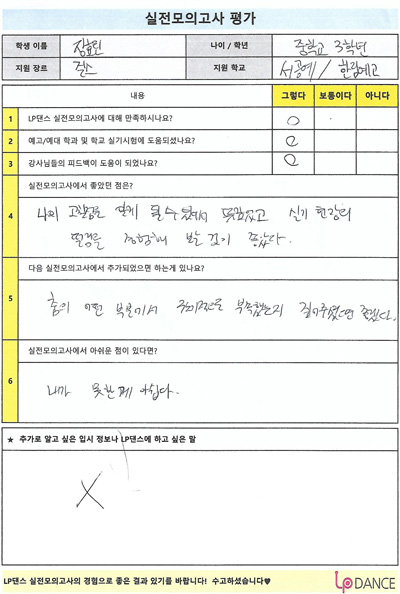 실전모의고사 평가
학생 이름 장효린 나이 / 학년 중학교 3학년
지원 장르 댄스 지원 학교 서공예 / 한림예고
내용 그렇다 보통이다 아니다
1 LP댄스 실전모의고사에 대해 만족하시나요? ○
2 예고/예대 학과 및 학교 실기시험에 도움되셨나요? ○
3 강사님들의 피드백이 도움이 되었나요? ○
실전모의고사에서 좋았던 점은?
4
나의 고칠점을 알게 될수 있어서 뜻깊었고 실기 현장의
떨림을 경험해 보는 것이 좋았다.
다음 실전모의고사에서 추가되었으면 하는게 있나요?
5
춤이 어떤 부분에서 구체적으로 부족했는지 집어주셨으면 좋겠다.
실전모의고사에서 아쉬운 점이 있다면?
6
내가 못한게 아쉽다.
★ 추가로 알고 싶은 입시 정보나 LP댄스에 하고 싶은 말
X
LP댄스 실전모의고사의 경험으로 좋은 결과 있기를 바랍니다! 수고하셨습니다♥
LP DANCE